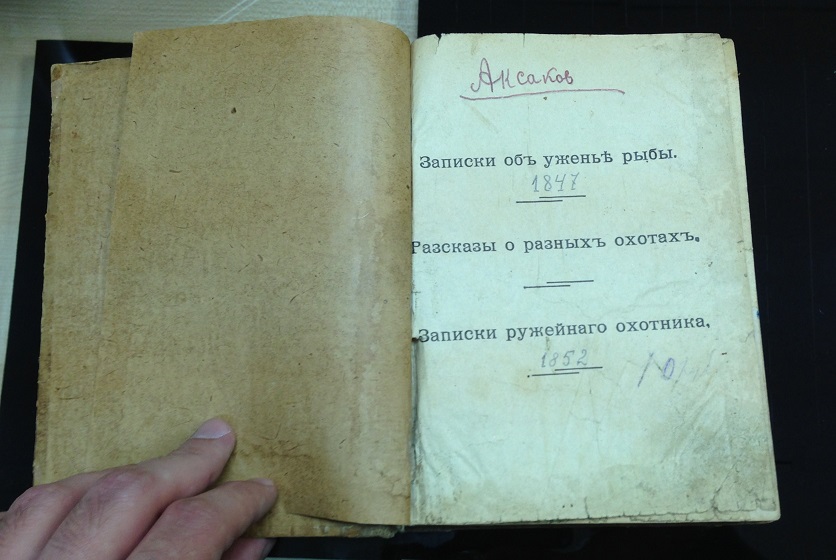 Аксаков
Записки объ уженьѣ рыбы.
1847
Разсказы о разныхъ охотахъ.
Записки ружейнаго охотника.
1852